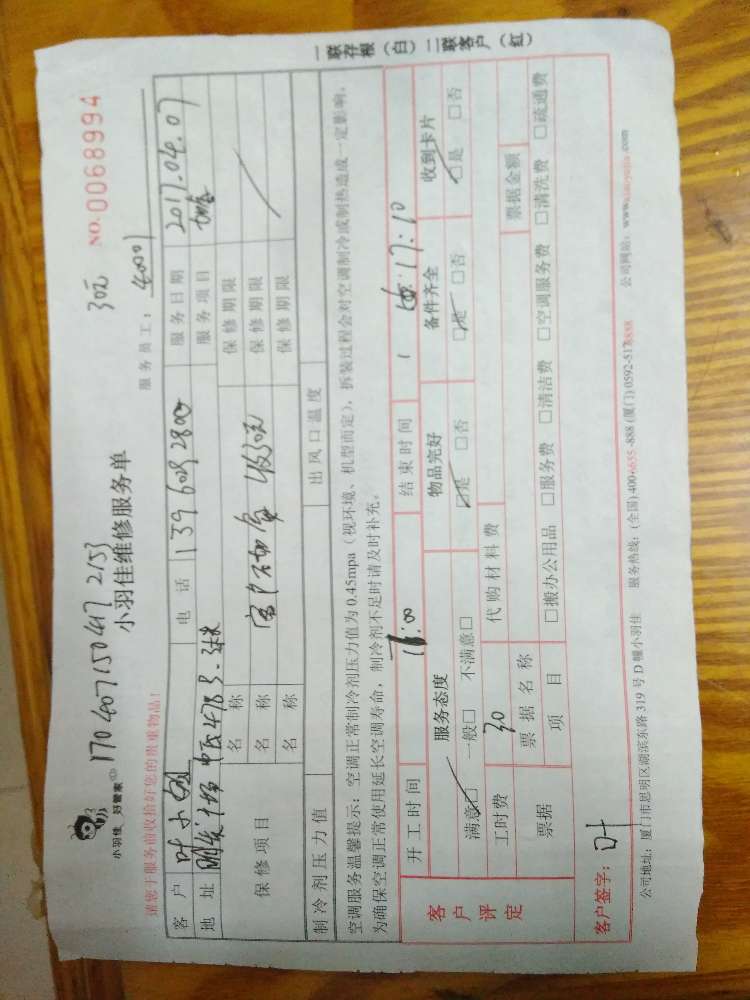 170407150417 2153
30元
NO.0068994
小羽佳 好管家
小羽佳维修服务单
请您于服务前收拾好您的贵重物品!
服务员工: 40001
客户 叶小姐 电话 139 6082800 服务日期 2017.04.07
地址 服务项目
保修项目 名称 保修期限
名称 客户不加氟 收30元 保修期限
名称 保修期限
制冷剂压力值 出风口温度
空调服务温馨提示:空调正常制冷剂压力值为0.45mpa(视环境、机型而定),拆装过程会对空调制冷或制热造成一定影响。
为确保空调正常使用延长空调寿命,制冷剂不足时请及时补充。
客户评定
开工时间 16:00 结束时间 17:10
服务态度 物品完好 备件齐全 收到卡片
满意□ 一般□ 不满意□ □是 □否 □是 □否 □是 □否
工时费 30 代购材料费
票据 票据名称 票据金额
项目 □搬办公用品 □服务费 □清洁费 □空调服务费 □清洗费 □疏通费
客户签字: 叶
公司地址:厦门市思明区湖滨东路319号D幢小羽佳 服务热线:(全国)400-6655-888(厦门)0592-5178888 公司网站:www.xiaoyujia.com
一联存根(白)二联客户(红)